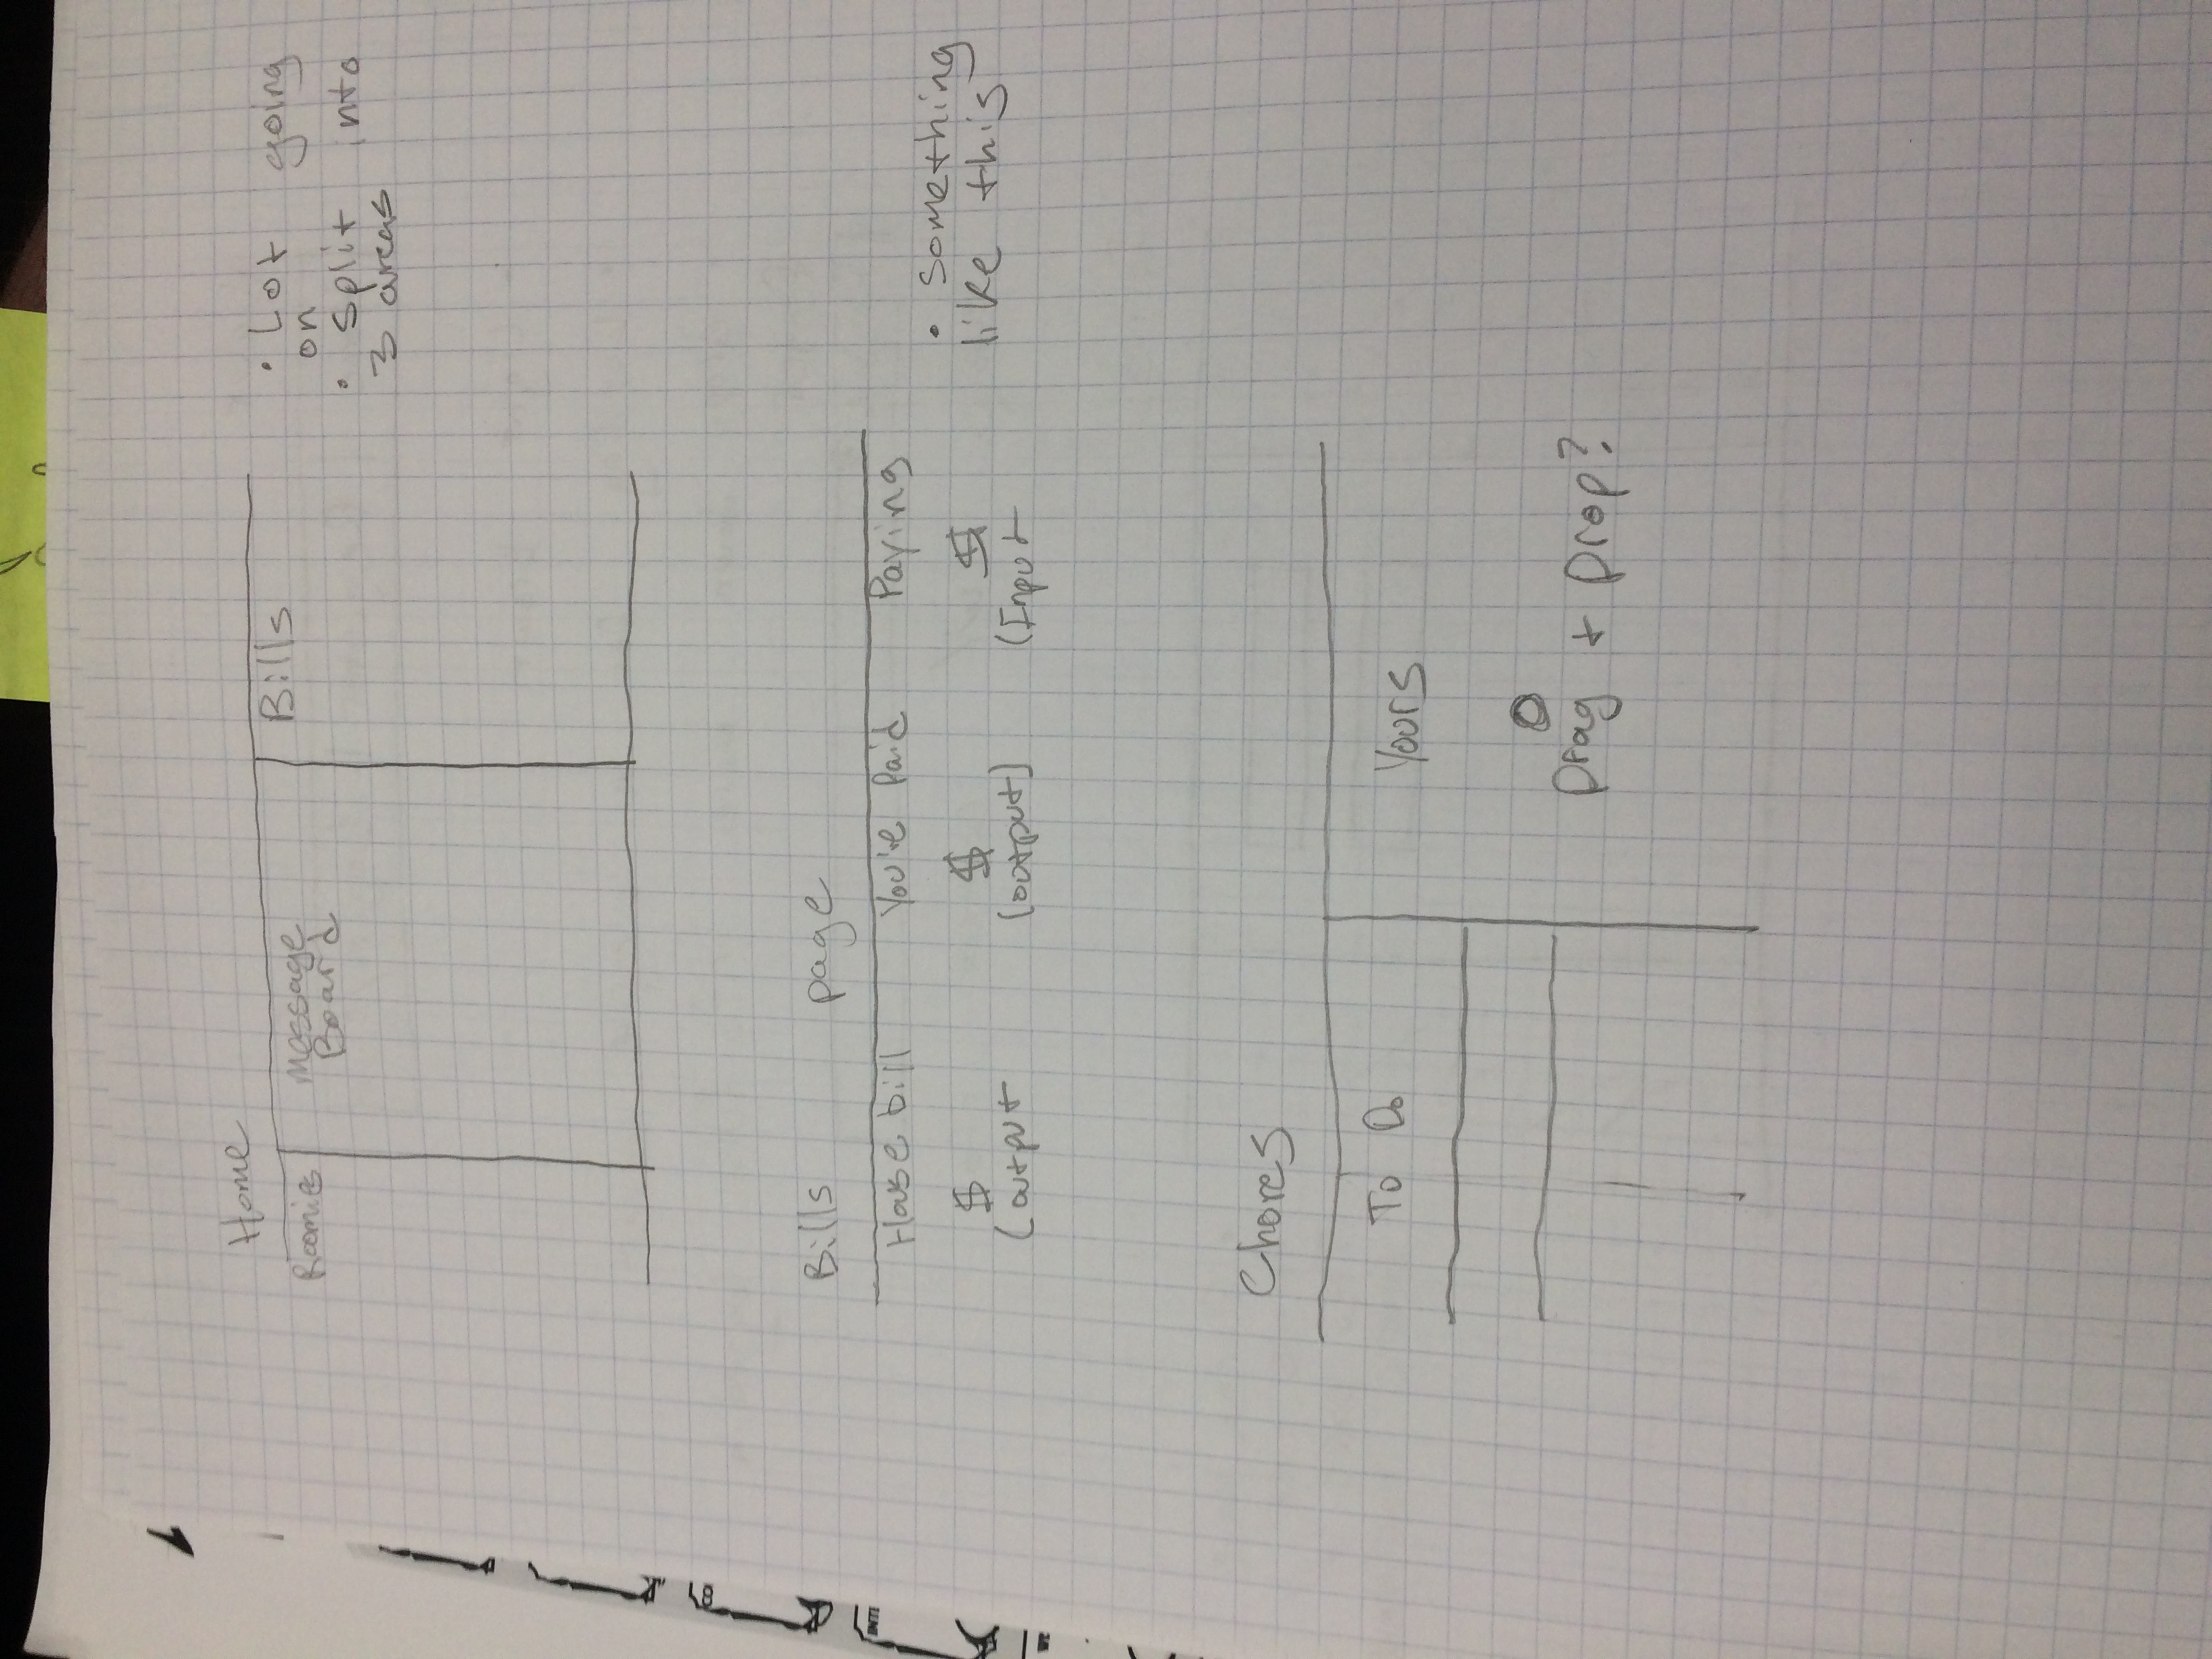 Home
Roomies
Message
Board
Bills
• Lot going
on
• Split into
3 areas
Bills page
House bill You've Paid Paying
$ $ $
(output (output) (Input
• Something
like this
Chores
To Do
Yours
Drag + Drop?